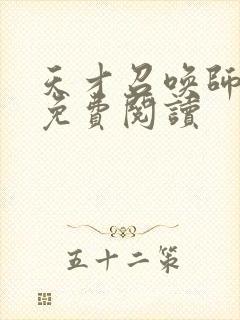 天才召喚師
免費閱讀
五十二策